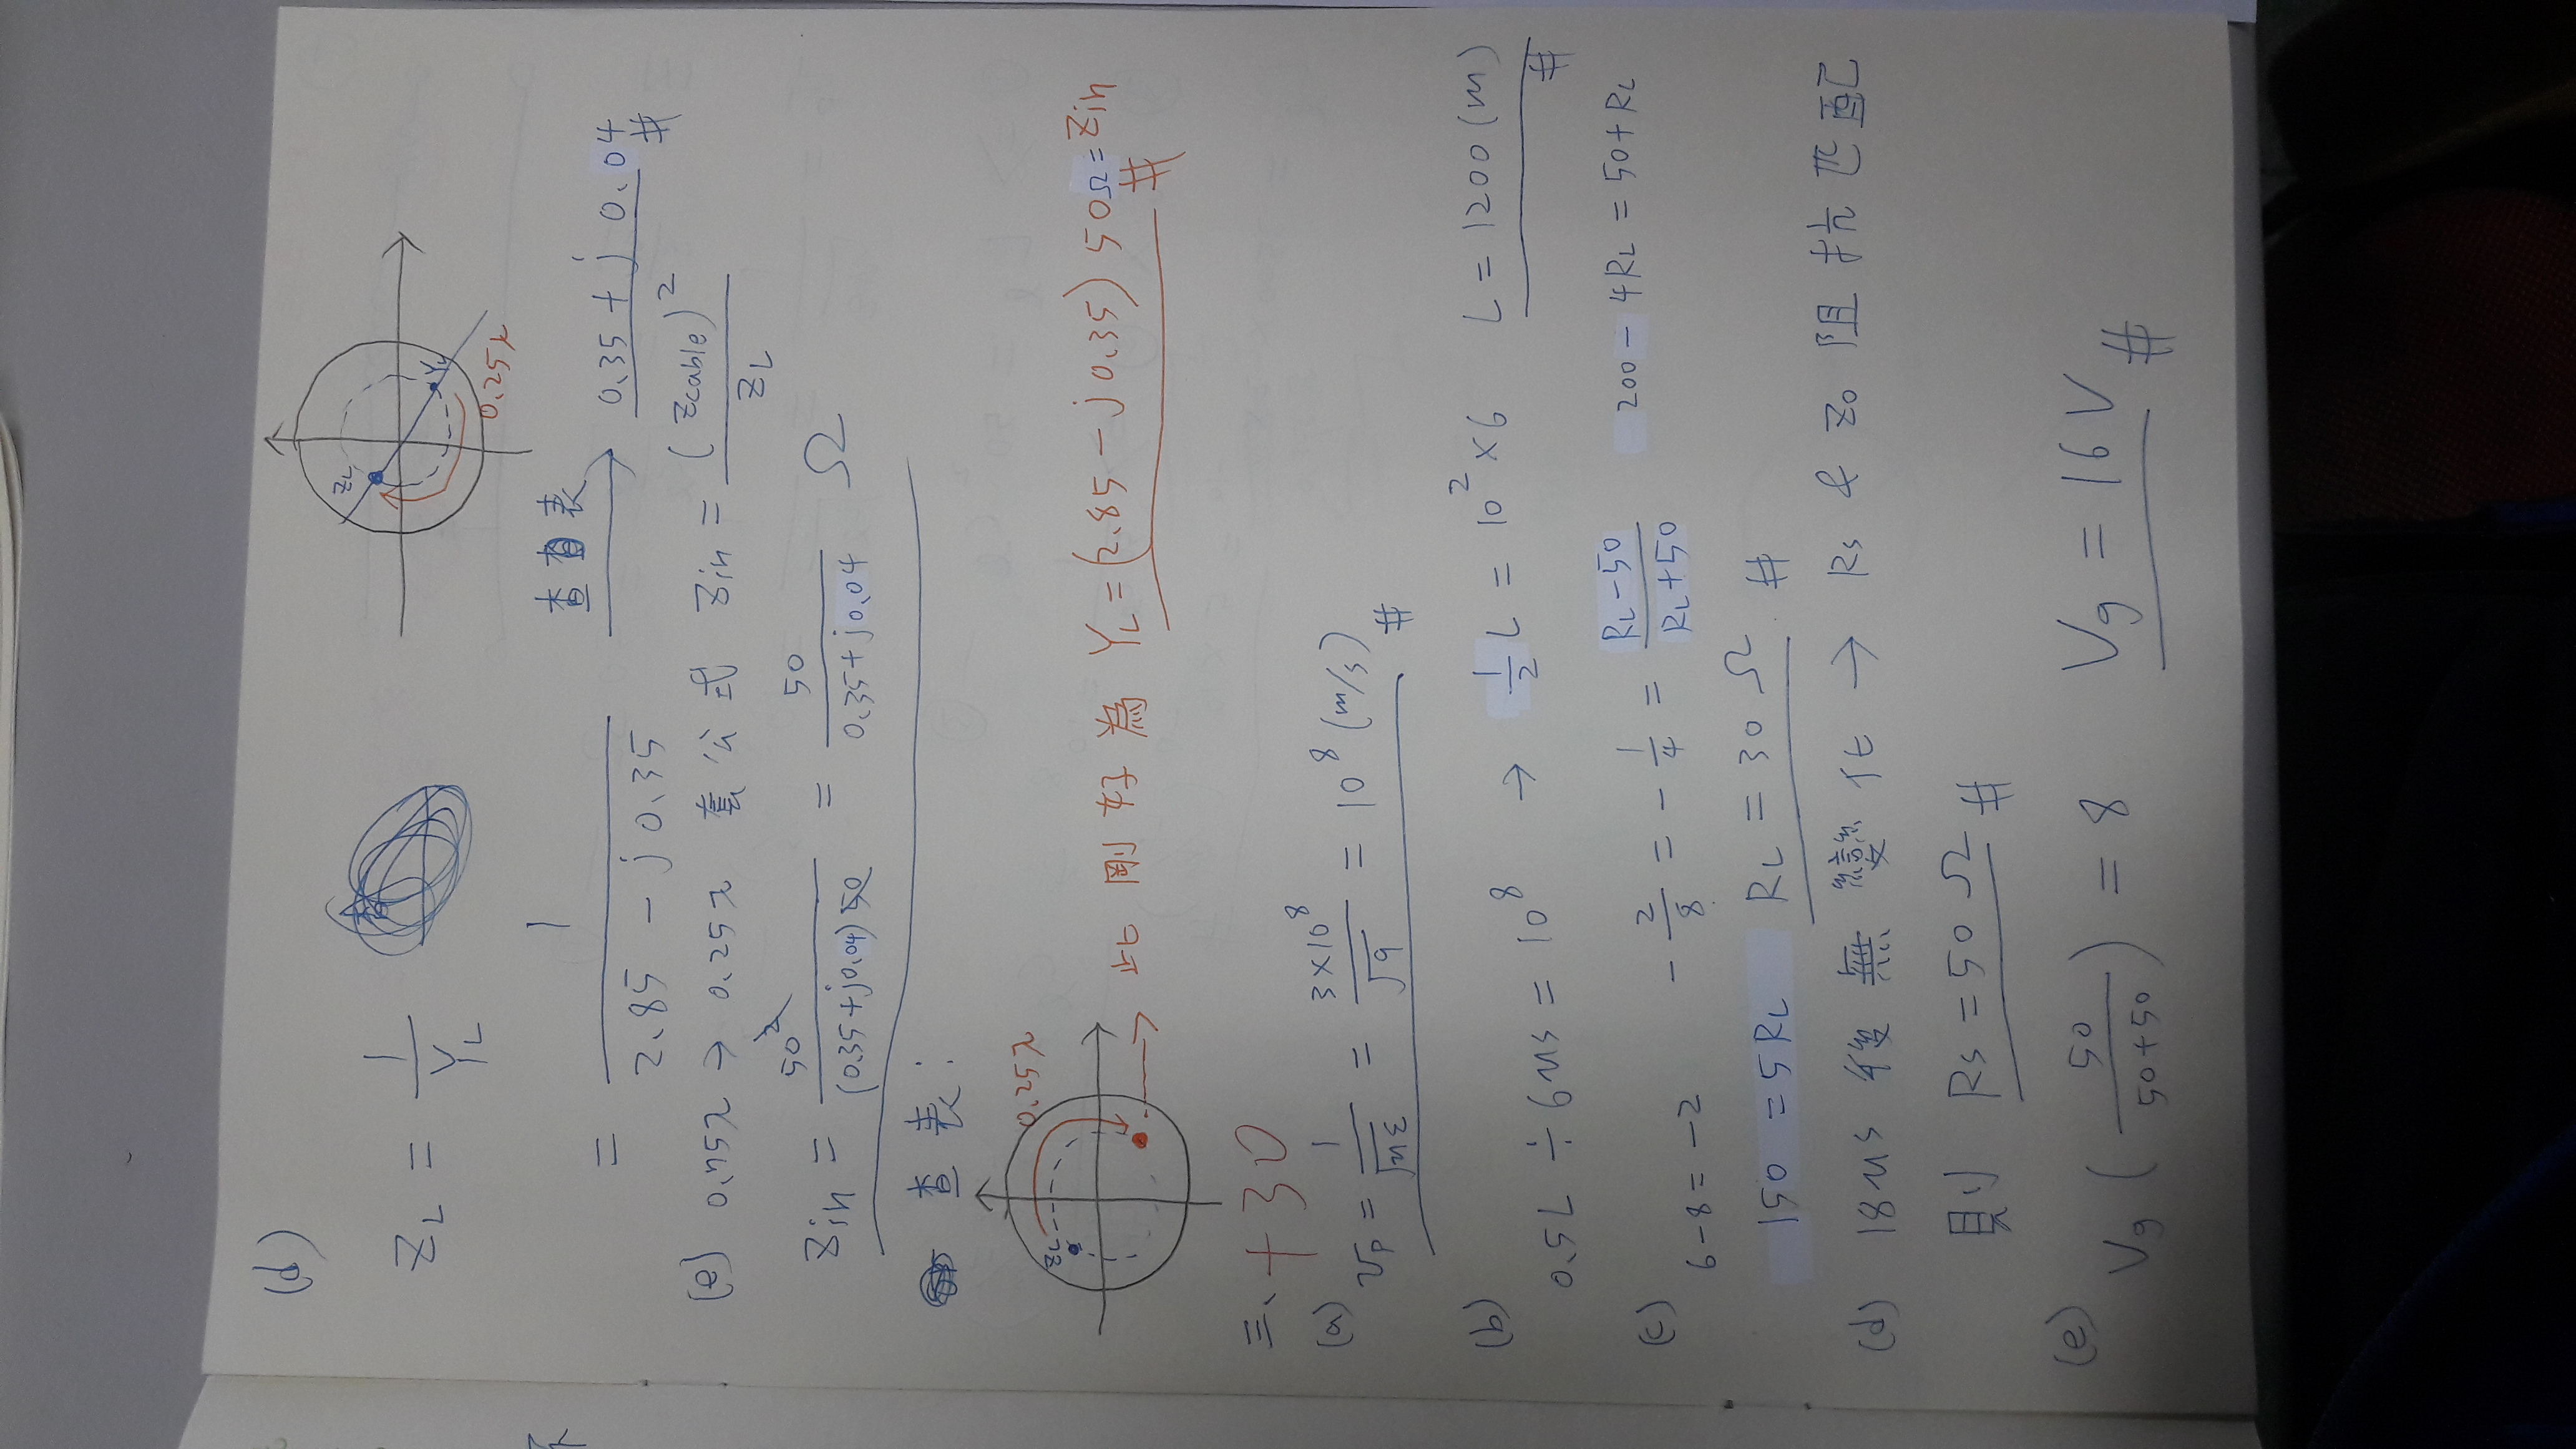 (d)
ZL
YL
0.25λ
ZL = 1/YL
= 1/(2.85 - j0.35) 查表 → 0.35 + j 0.04 #
(e) 0.75λ → 0.25λ 套公式 Zin = (Zcable)²/ZL
Zin = 50²/((0.35+j0.04)50) = 50/(0.35+j0.04) Ω
查表:
ZL
0.25λ
→ 此剛好為 YL = (2.85 - j0.35) 50Ω = Zin #
三、+30
(a) υp = 1/√με = 3×10⁸/√9 = 10⁸ (m/s) #
(b) 0.5L ÷ 6μs = 10⁸ → ½L = 10²×6 L = 1200 (m) #
(c) 6-8 = -2 -2/8 = -1/4 = (RL-50)/(RL+50) 200 - 4RL = 50+RL
150 = 5RL RL = 30 Ω #
(d) 18μs 後無變化 → Rs & Z₀ 阻抗匹配
則 Rs = 50 Ω #
(e) Vg (50/(50+50)) = 8 Vg = 16V #